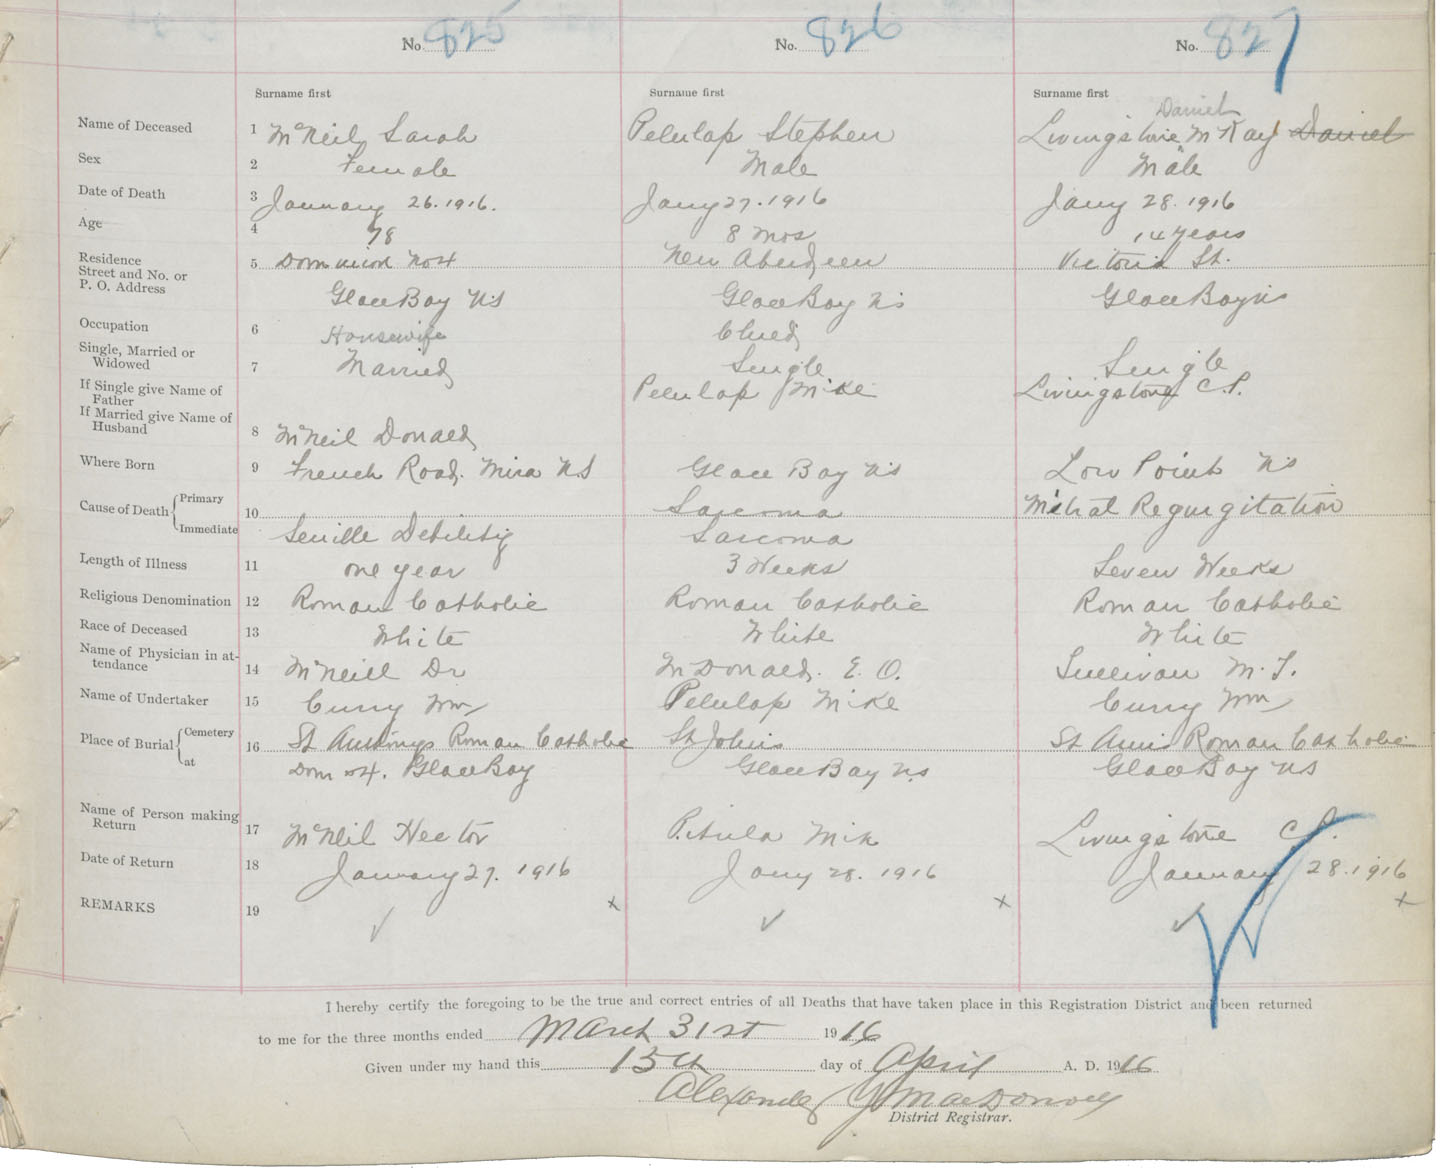 No. 825 No. 826 No. 827
Surname first Surname first Surname first
Daniel
Name of Deceased 1 McNeil, Sarah Pelulap Stephen Livingstone McKay Daniel
Sex 2 Female Male Male
Date of Death 3 January 26. 1916. Jany 27. 1916 Jany 28. 1916
Age 4 78 8 mos 14 years
Residence
Street and No. or
P. O. Address
5 Dominion No 4 New Aberdeen Victoria St.
Glace Bay NS Glace Bay NS Glace Bay NS
Occupation 6 Housewife Chied
Single, Married or
Widowed 7 Married Single Single
If Single give Name of
Father Pelulap Mike Livingstone C.P.
If Married give Name of
Husband 8 McNeil Donald
Where Born 9 French Road. Mira N.S Glace Bay NS Low Point NS
Cause of Death Primary 10 Sarcoma Mitral Regurgitation
Immediate Senille Debility Sarcoma
Length of Illness 11 one year 3 Weeks Seven Weeks
Religious Denomination 12 Roman Catholic Roman Catholic Roman Catholic
Race of Deceased 13 White White White
Name of Physician in at-
tendance 14 McNeill Dr McDonald. E. O. Sullivan M. T.
Name of Undertaker 15 Curry Wm Pelulap Mike Curry Wm
Place of Burial Cemetery 16 St Anthonys Roman Catholic St Johns St Anns Roman Catholic
at Dom No 4. Glace Bay Glace Bay N.S Glace Bay NS
Name of Person making
Return 17 McNeil Hector Pitula Mik Livingstone C.P.
Date of Return 18 January 27. 1916 Jany 28. 1916 January 28. 1916
REMARKS 19 x x x
I hereby certify the foregoing to be the true and correct entries of all Deaths that have taken place in this Registration District and been returned
to me for the three months ended March 31st 1916
Given under my hand this 15th day of April A. D. 1916
Alexander J. MacDonald
District Registrar.